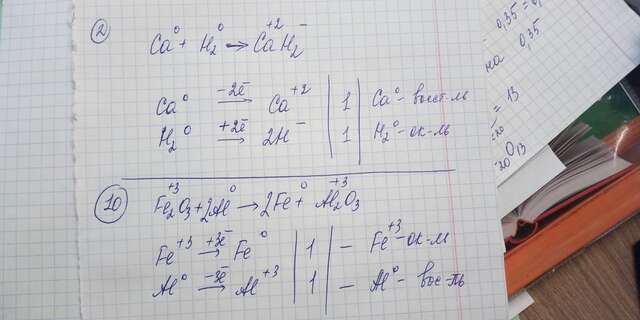 ② Ca⁰ + H₂⁰ → Ca⁺²H₂⁻
Ca⁰ −2ē → Ca⁺² | 1 | Ca⁰ - восст-ль
H₂⁰ +2ē → 2H⁻ | 1 | H₂⁰ - ок-ль
⑩ Fe₂⁺³O₃ + 2Al⁰ → 2Fe⁰ + Al₂⁺³O₃
Fe⁺³ +3ē → Fe⁰ | 1 | - Fe⁺³ - ок-ль
Al⁰ −3ē → Al⁺³ | 1 | - Al⁰ - вос-ль
0,35 =
на 0,35
= 13
20O₁₃